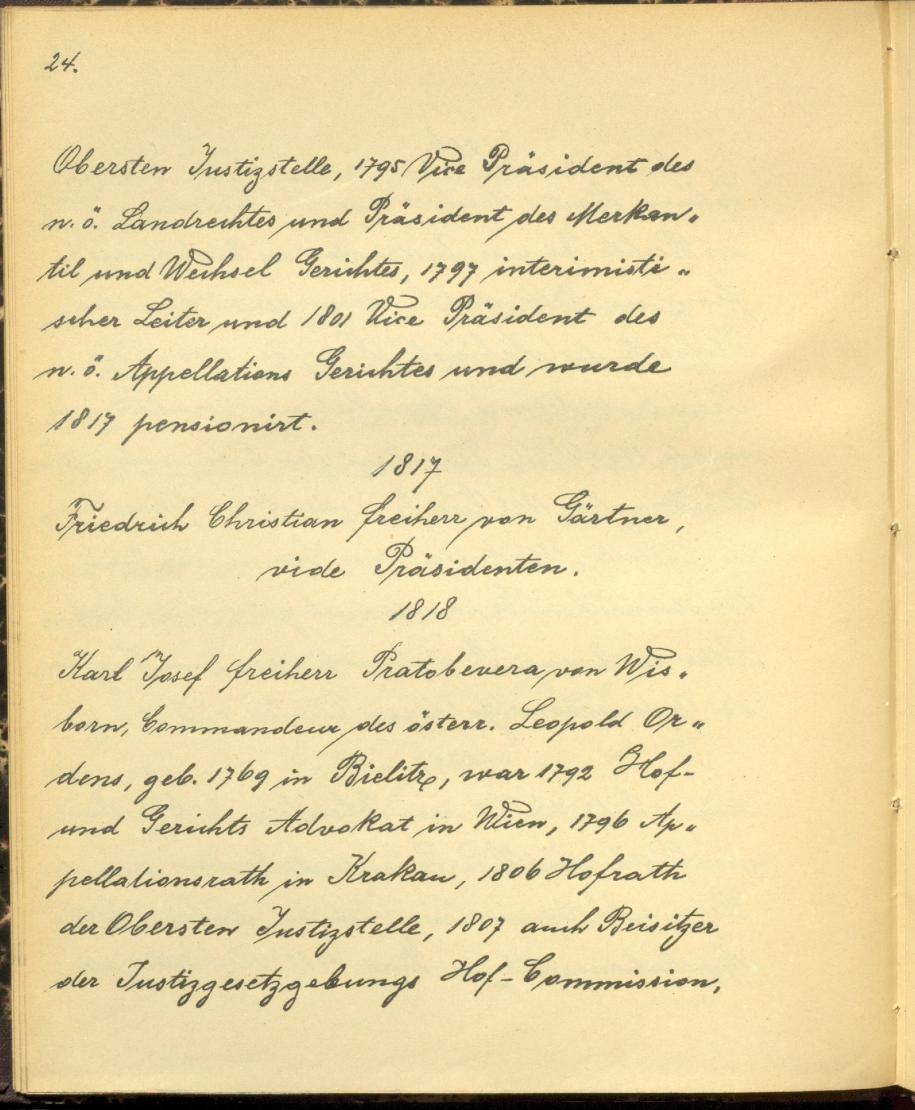 24.
Obersten Justizstelle, 1795 Vice Präsident des
n. ö. Landrechtes und Präsident des Merkan„
til und Wechsel Gerichtes, 1797 interimisti„
scher Leiter und 1801 Vice Präsident des
n. ö. Appellations Gerichtes und wurde
1817 pensionirt.
1817
Friedrich Christian freiherr von Gärtner,
vide Präsidenten.
1818
Karl Josef freiherr Pratobevera von Wis„
born, Commandeur des österr. Leopold Or„
dens, geb. 1769 in Bielitz, war 1792 Hof-
und Gerichts Advokat in Wien, 1796 Ap„
pellationsrath in Krakau, 1806 Hofrath
der Obersten Justizstelle, 1807 auch Beisitzer
der Justizgesetzgebungs Hof-Commission,